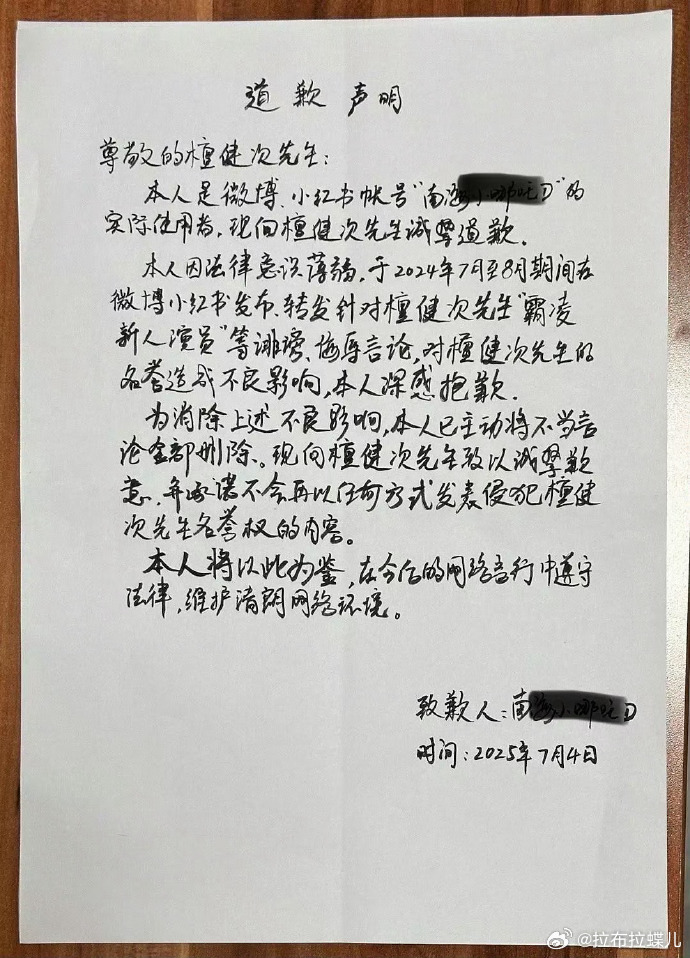 道歉声明
尊敬的檀健次先生：
本人是微博、小红书帐号“南 的
实际使用者，现向檀健次先生诚挚道歉．
本人因法律意识薄弱，于2024年7月至8月期间在
微博小红书发布、转发针对檀健次先生“霸凌
新人演员”等诽谤、侮辱言论，对檀健次先生的
名誉造成不良影响，本人深感抱歉．
为消除上述不良影响，本人已主动将不当言
论全部删除。现向檀健次先生致以诚挚歉
意，并承诺不会再以任何方式发表侵犯檀健
次先生名誉权的内容。
本人将以此为鉴，在今后的网络言行中遵守
法律，维护清朗网络环境。
致歉人：南
时间：2025年7月4日
@拉布拉蝶儿